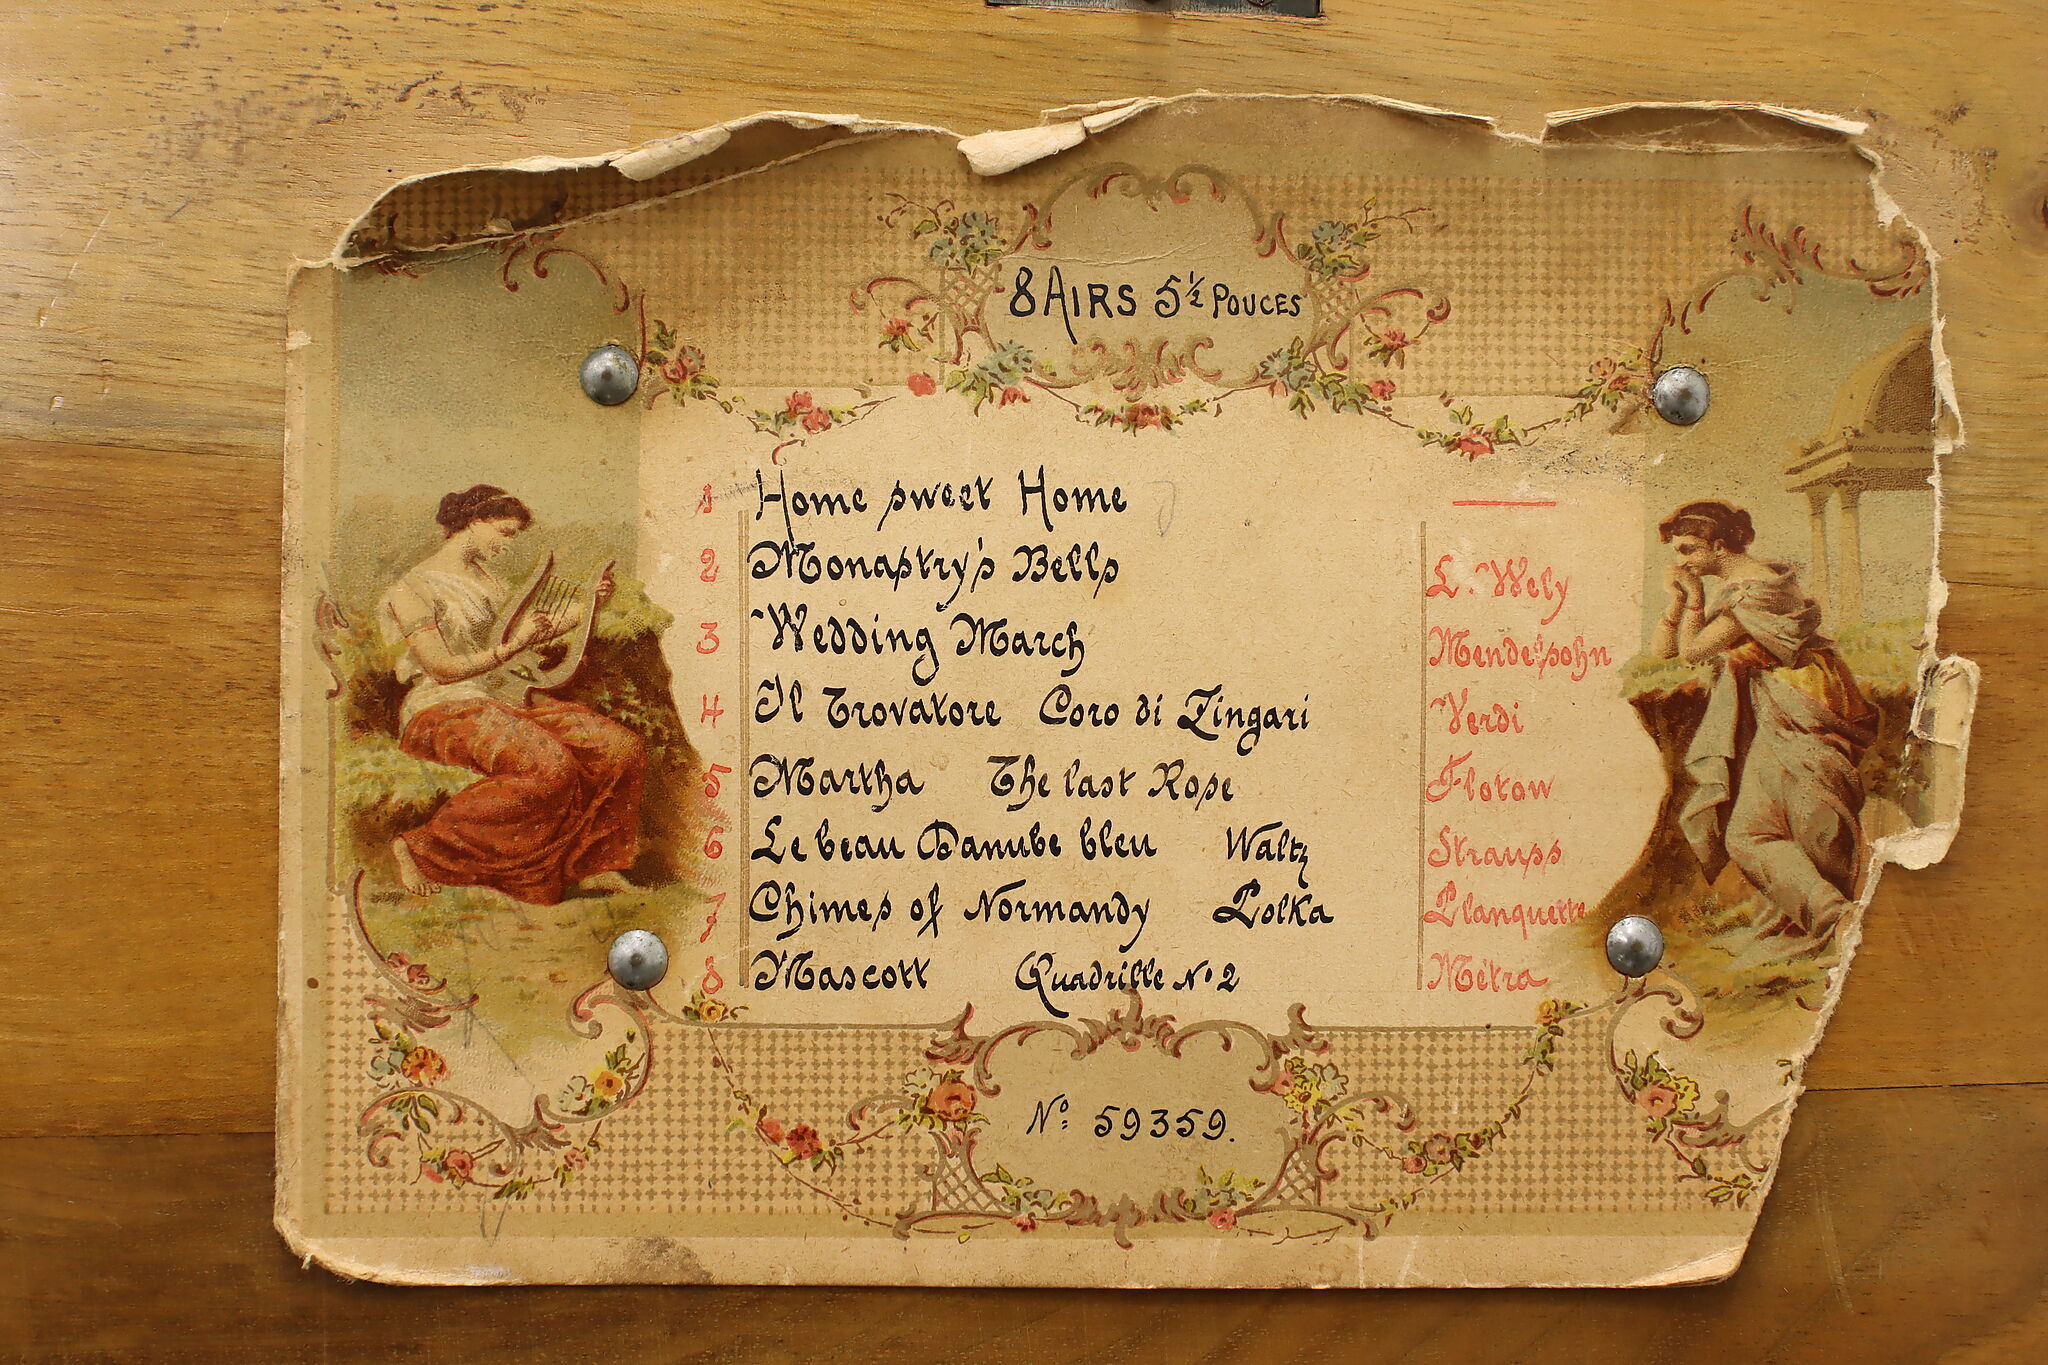 8 AIRS 5½ POUCES
1 Home sweet Home —
2 Monastry's Bells L. Wely
3 Wedding March Mendelsohn
4 Il Trovatore Coro di Zingari Verdi
5 Martha The last Rose Flotow
6 Le beau Danube bleu Waltz Strauss
7 Chimes of Normandy Polka Planquette
8 Mascott Quadrille No. 2 Métra
No. 59359.